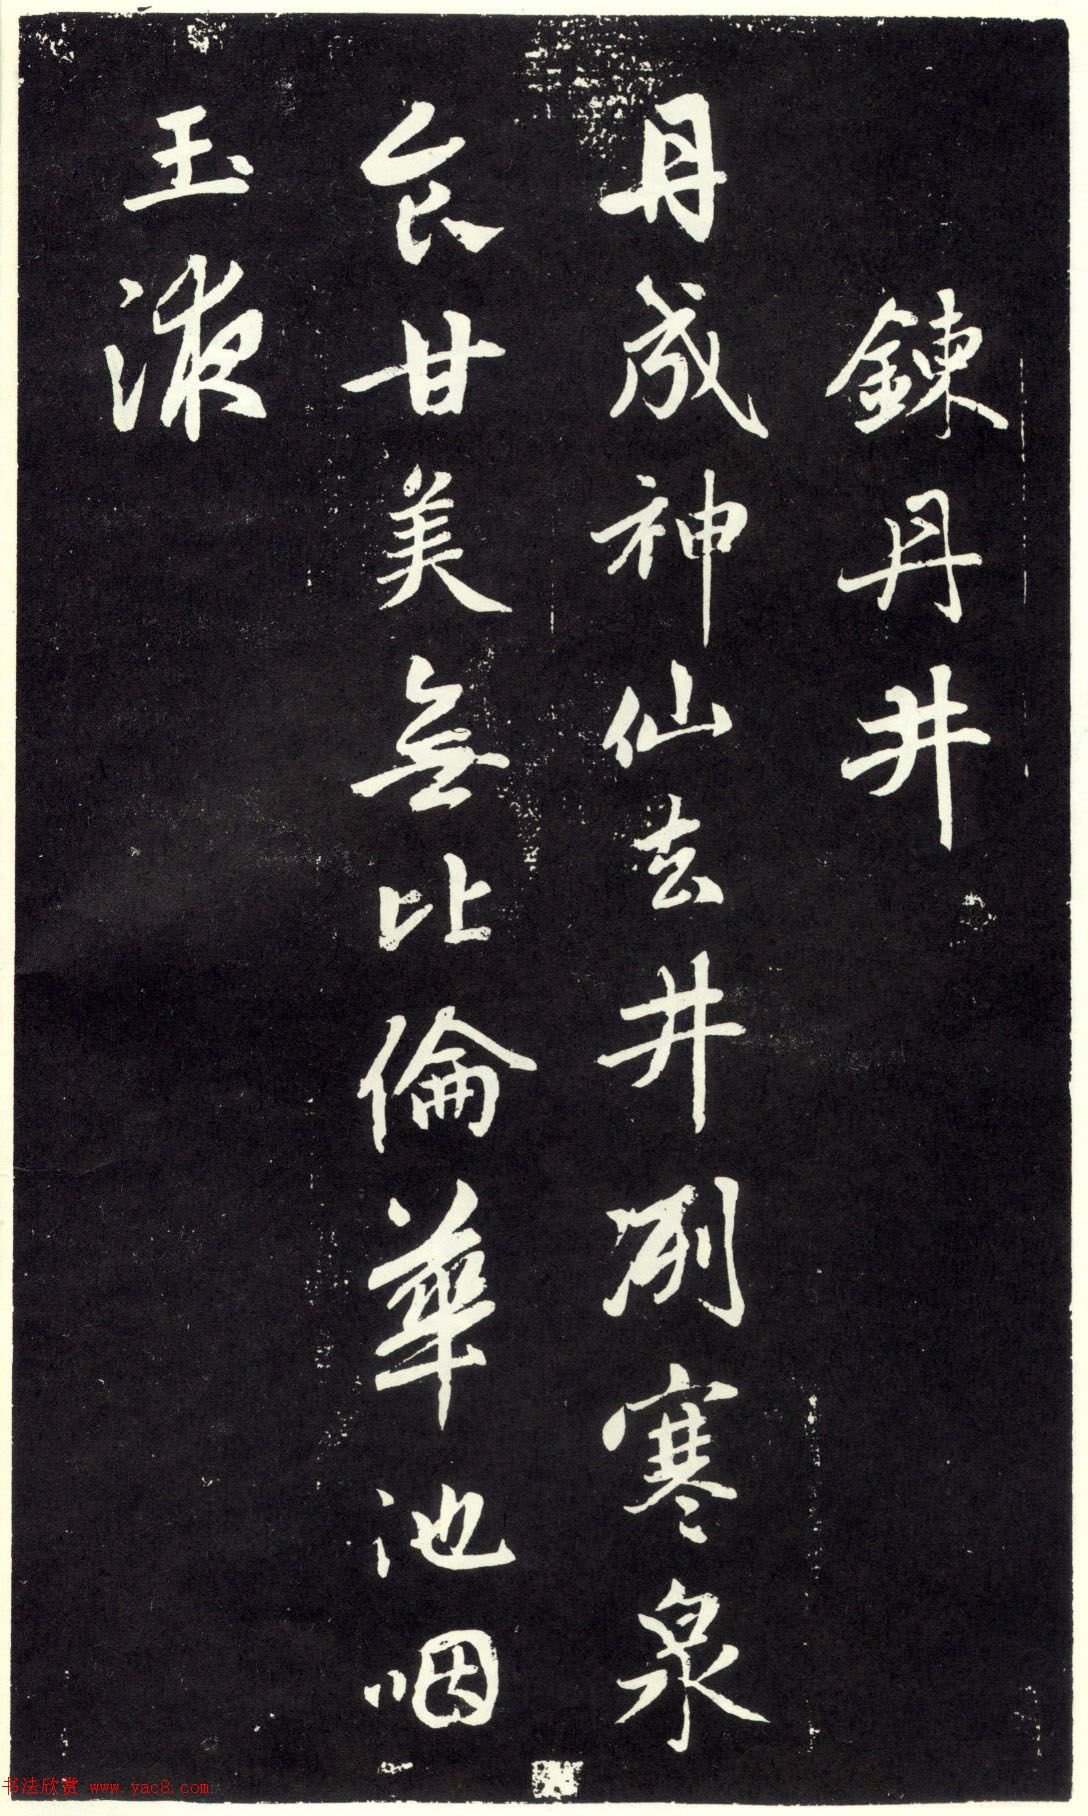 鍊丹井
丹成神仙去井冽寒泉
食甘美無比倫華池咽
玉液
书法欣赏 www.yac8.com